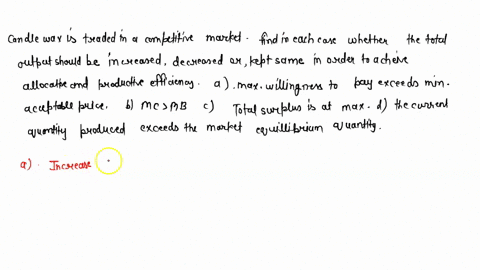 Candle wax is traded in a competitive market. find in each case whether the total
output should be increased, decreased or, kept same in order to achieve
allocative and productive efficiency. a). max. willingness to pay exceeds min.
acceptable price. b) MC > MB c) Total surplus is at max. d) the current
quantity produced exceeds the market equillibrium quantity.
a) Increase